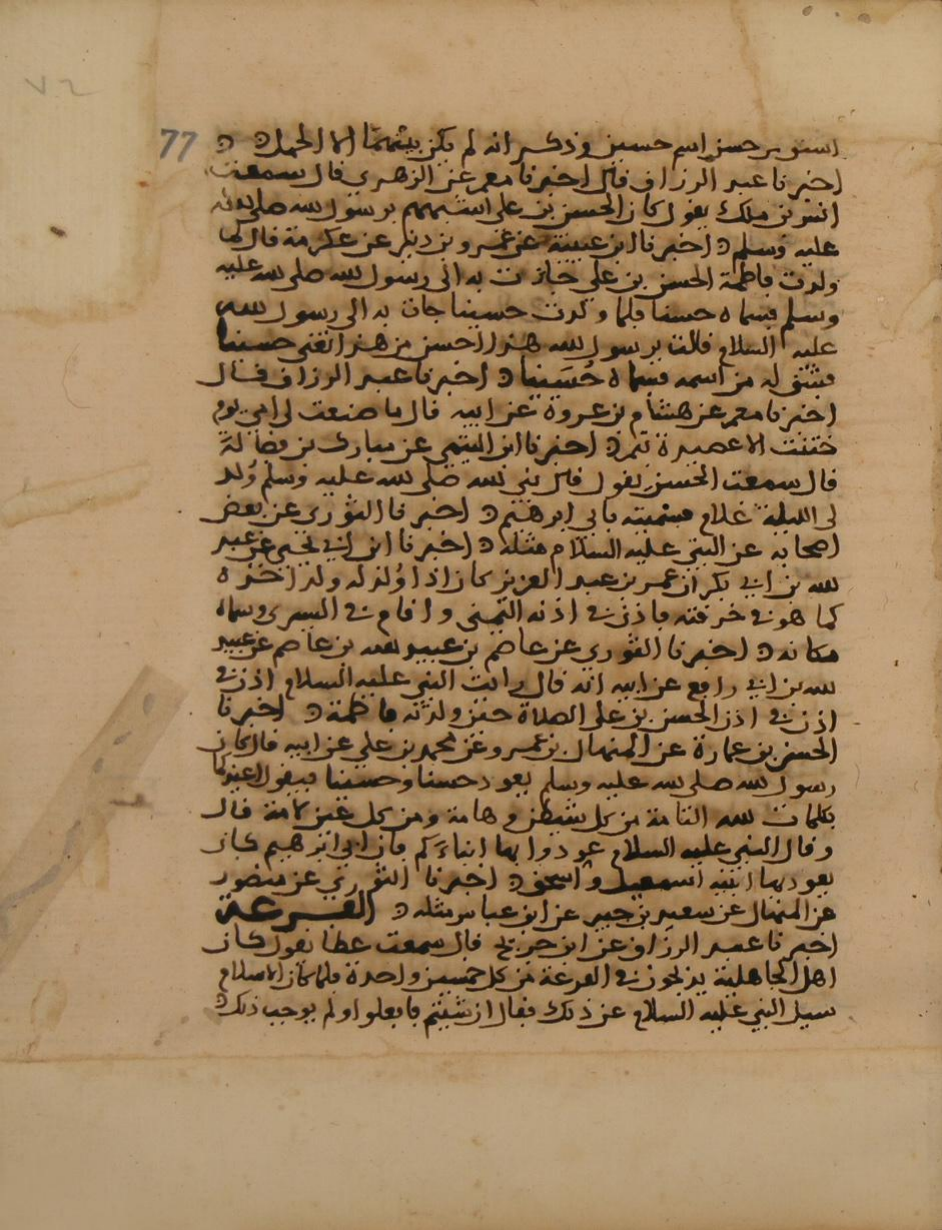 ٧٢
77
اشتق من حسن اسم حسين وذكر انه لم يكن بينهما الا الحمل
اخبرنا عبد الرزاق قال اخبرنا معمر عن الزهري قال سمعت
انس بن ملك يقول كان الحسن بن علي اشبههم برسول الله صلى الله
عليه وسلم اخبرنا ابن عيينة عن عمرو بن دينر عن عكرمة قال لما
ولدت فاطمة الحسن بن علي جازت به الى رسول الله صلى الله عليه
وسلم فسماه حسنا فلما ولدت حسينا جات به الى رسول الله
عليه السلام فالت يرسول الله هذا احسن من هذا تعني حسينا
فشق له من اسمه فسماه حُسَينا اخبرنا عبد الرزاق قال
اخبرنا معمر عن هشام بن عروة عن ابيه قال ما صنعت لي امي يوم
ختنت الا عصيدة تمر اخبرنا ابن التيمي عن مبارك بن فضالة
قال سمعت الحسن يقول قال نبي الله صلى الله عليه وسلم وُلد
لي الليلة غلام فسميته بابي ابرهيم اخبرنا الثوري عن بعض
اصحابه عن النبي عليه السلام مثله اخبرنا ابن ابي يحيى عن عبد
الله بن ابي بكر ان عمر بن عبد العزيز كان اذا وُلد له ولد اخذه
كما هو في خرقته فاذن في اذنه اليمنى واقام في اليسرى وسماه
مكانه اخبرنا الثوري عن عاصم بن عبيد الله بن عاصم عن عبيد
الله بن ابي رافع عن ابيه انه قال رايت النبي عليه السلام اذن في
اذن في اذن الحسن بن علي الصلاة حين ولدته فاطمة اخبرنا
الحسن بن عمارة عن المنهال بن عمرو عن محمد بن علي عن ابيه قال كان
رسول الله صلى الله عليه وسلم يعوذ حسنا وحسينا فيقول اعيذكما
بكلمات الله التامة من كل شيطن وهامة ومن كل عين لامة قال
وقال النبي عليه السلام عوذوا بها ابناءكم فان ابي ابرهيم كان
يعوذ بها ابنيه اسمعيل واسحق اخبرنا الثوري عن منصور
عن المنهال عن سعيد بن جبير عن ابن عباس مثله الفرعة
اخبرنا عبد الرزاق عن ابن جريج قال سمعت عطا يقول كان
اهل الجاهلية يذبحون في الفرعة من كل خمسين واحدة فلما كان الاسلام
سيل النبي عليه السلام عن ذلك فقال ان شيتم فافعلوا ولم يوجب ذلك